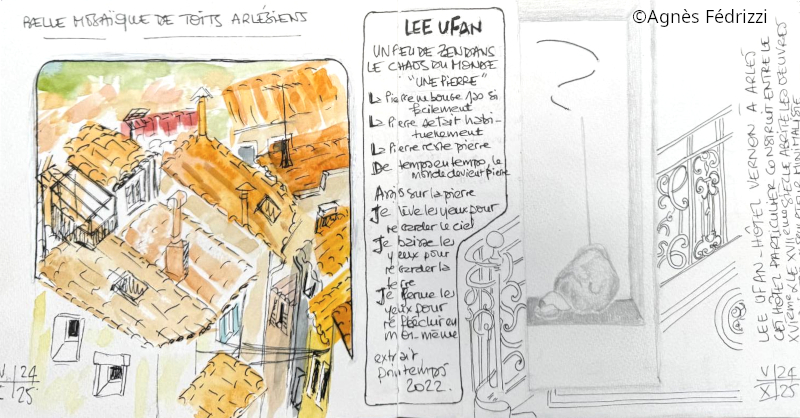 ©Agnès Fédrizzi
BELLE MOSAÏQUE DE TOITS ARLÉSIENS
LEE UFAN
UN PEU DE ZEN DANS
LE CHAOS DU MONDE
"UNE PIERRE"
La Pierre ne bouge pas si
facilement
La Pierre se tait habi-
tuellement
La Pierre reste pierre
De temps en temps, le
monde devient pierre
Assis sur la pierre
Je lève les yeux pour
regarder le ciel
Je baisse les
yeux pour
regarder la
terre
Je ferme les
yeux pour
réfléchir en
moi-même
extrait
printemps
2022.
LEE UFAN - HÔTEL VERNON À ARLES
CET HÔTEL PARTICULIER CONSTRUIT ENTRE LE
XVIème & LE XVIIème SIÈCLE ABRITE LES OEUVRES
MINIMALISTE
V 24
25
V 24
X 25